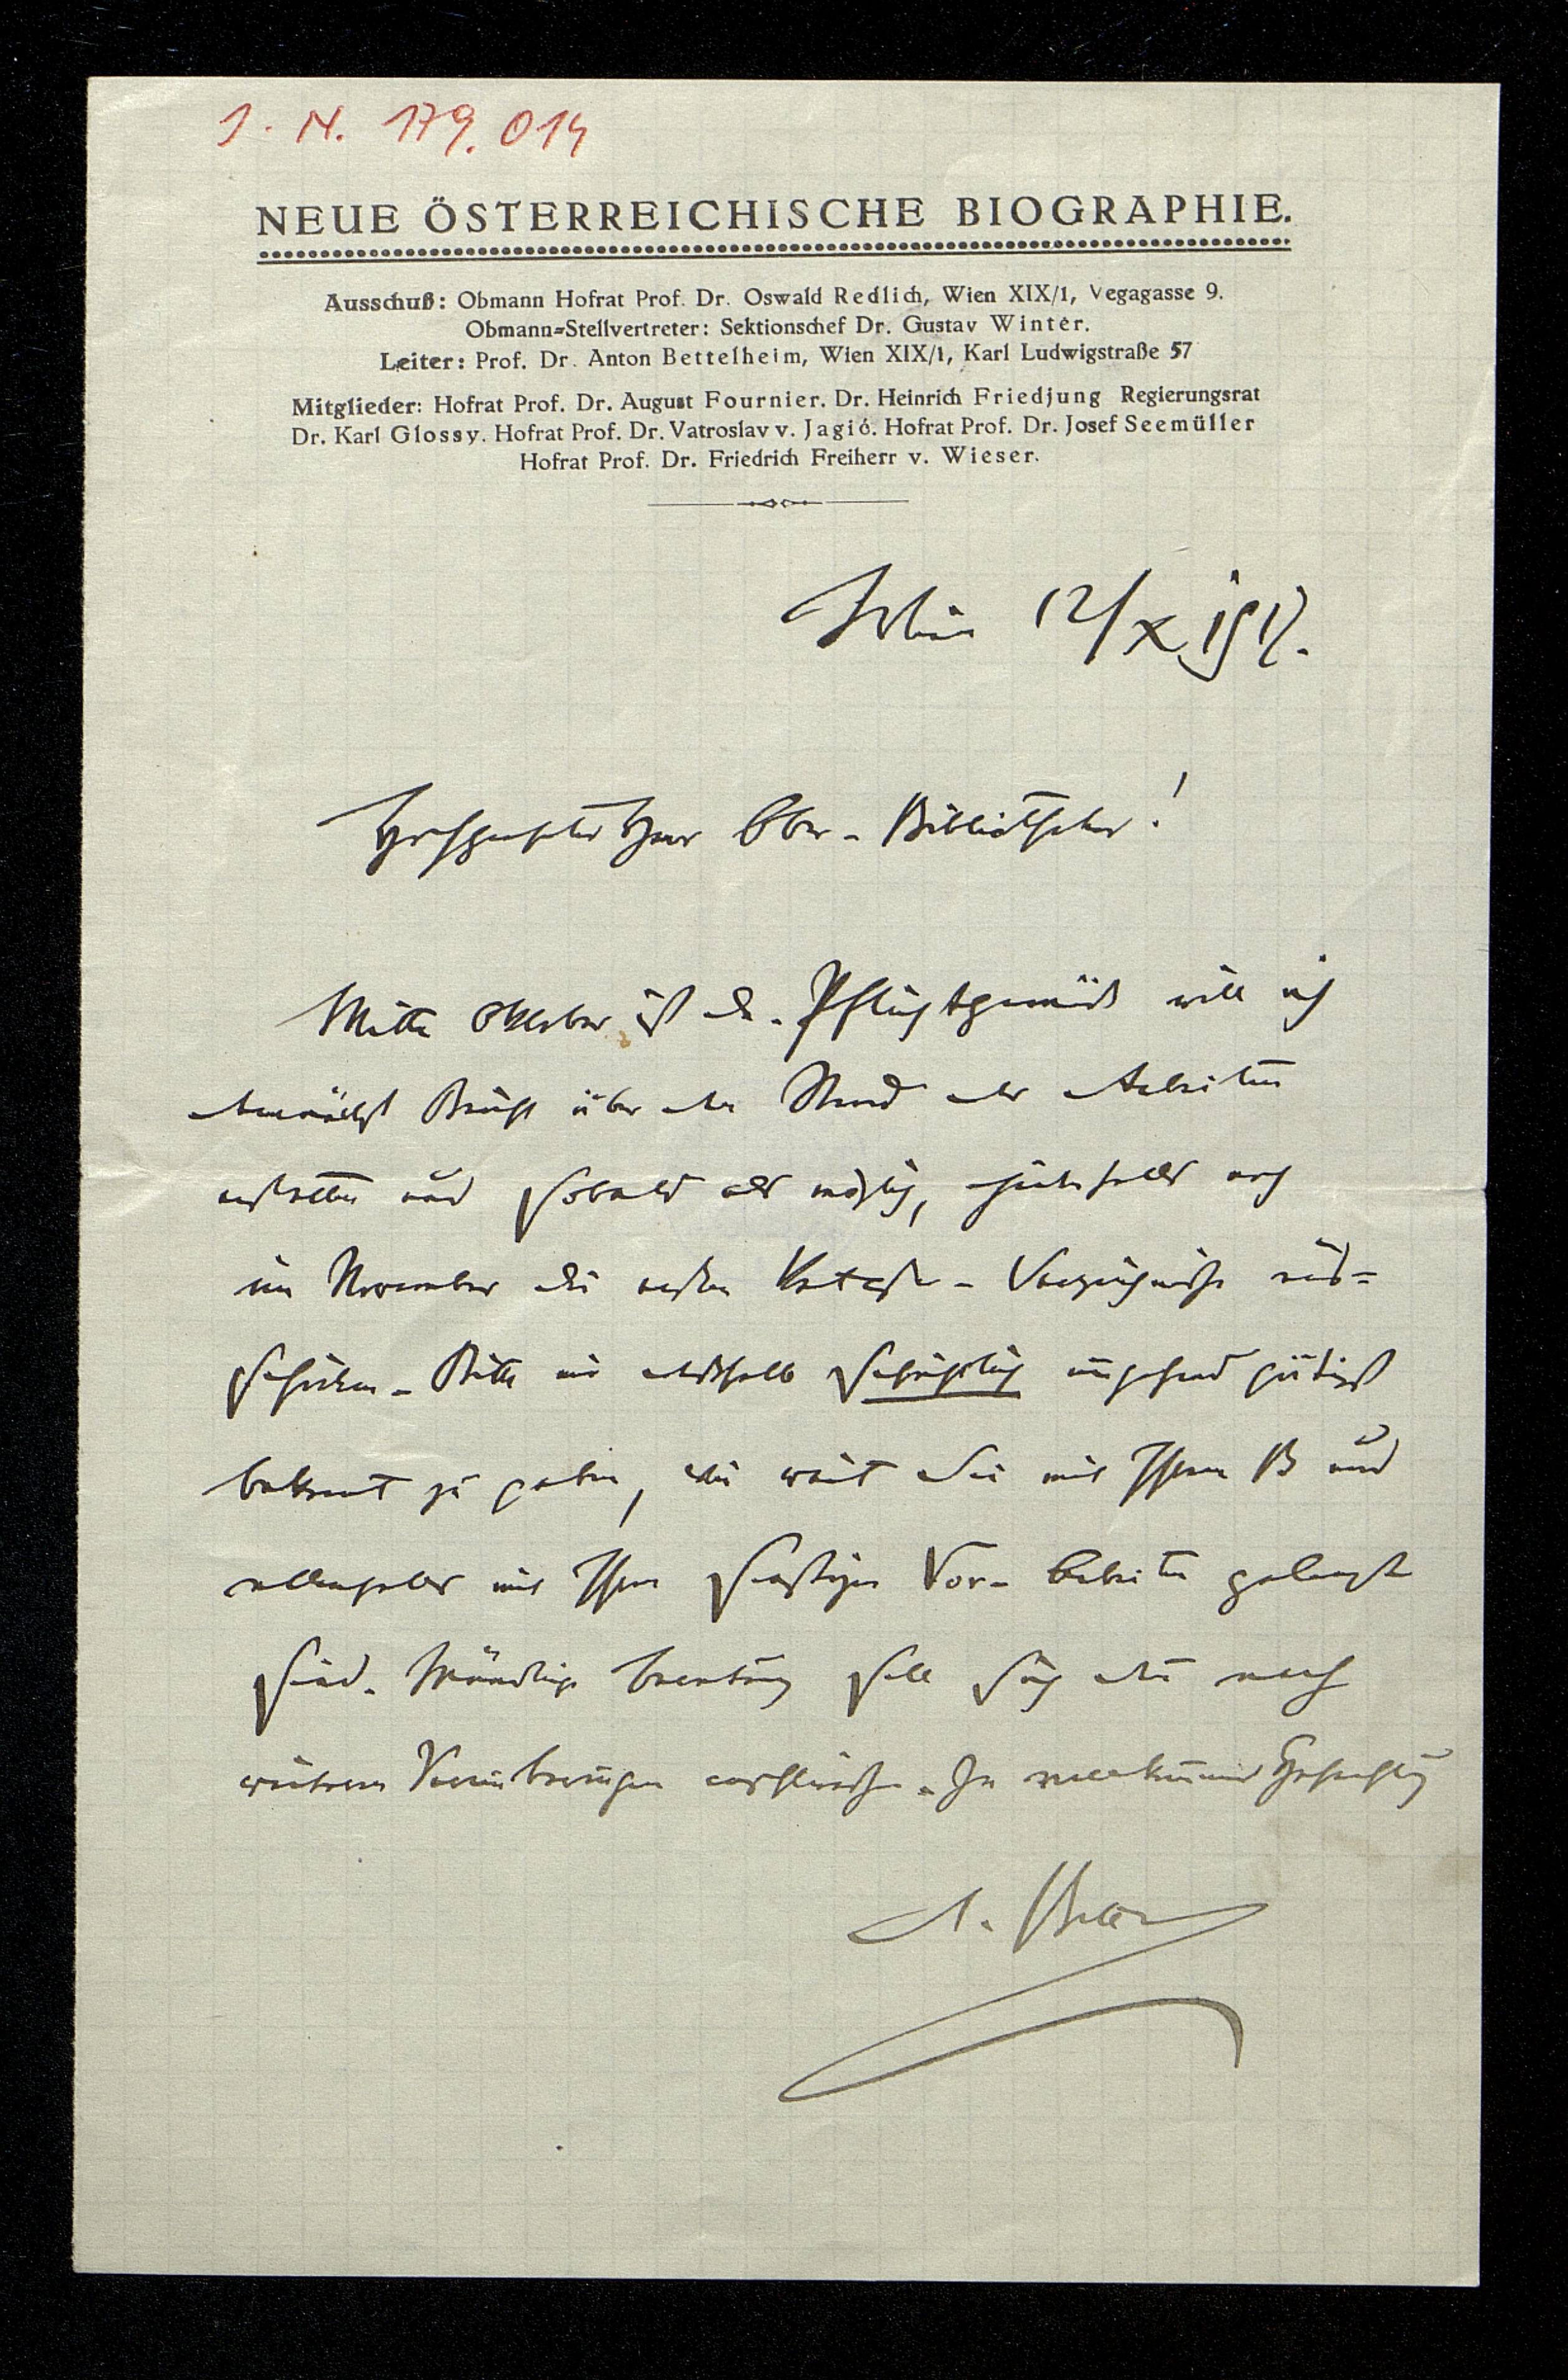 J. N. 179.014
NEUE ÖSTERREICHISCHE BIOGRAPHIE.
Ausschuß: Obmann Hofrat Prof. Dr. Oswald Redlich, Wien XIX/1, Vegagasse 9.
Obmann-Stellvertreter: Sektionschef Dr. Gustav Winter.
Leiter: Prof. Dr. Anton Bettelheim, Wien XIX/1, Karl Ludwigstraße 57
Mitglieder: Hofrat Prof. Dr. August Fournier. Dr. Heinrich Friedjung Regierungsrat
Dr. Karl Glossy. Hofrat Prof. Dr. Vatroslav v. Jagić. Hofrat Prof. Dr. Josef Seemüller
Hofrat Prof. Dr. Friedrich Freiherr v. Wieser.
Wien 12/X 1917.
Hochgeehrter Herr Ober-Bibliothekar!
Mitte Oktober ist da. Pflichtgemäß will ich
demnächst Bericht über den Stand der Arbeiten
erstatten und sobald als möglich, jedenfalls noch
im November die ersten Kataster-Verzeichnisse aus-
schicken. Bitte mir deshalb schriftlich umgehend gütigst
bekannt zu geben, wie weit Sie mit Ihrem B und
allenfalls mit Ihren sonstigen Vor-Arbeiten gelangt
sind. Mündliche Beratung soll sich dann nach
weiteren Vereinbarungen anschließen. In vollkommener Hochachtung
A. Bettelheim